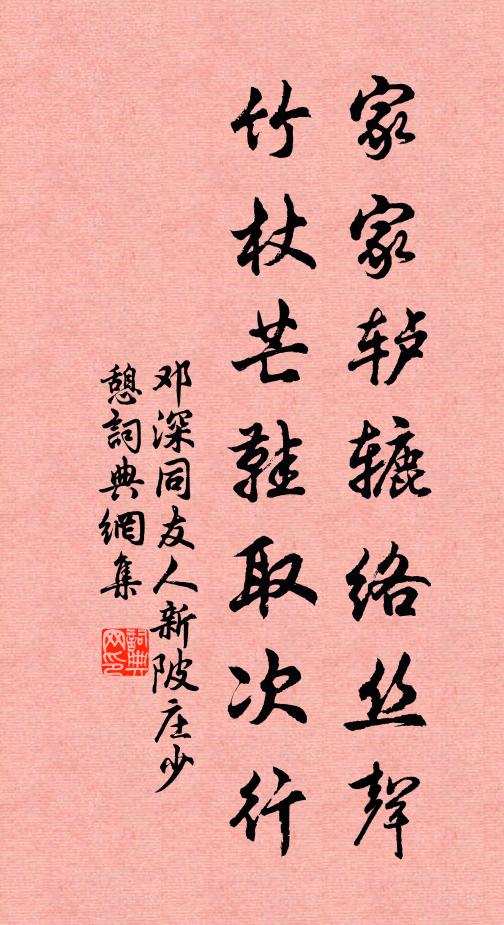 家家轳辘络丝聲
竹杖芒鞋取次行
邓深同友人新陂庄少
憩詞典網集
詞典网印